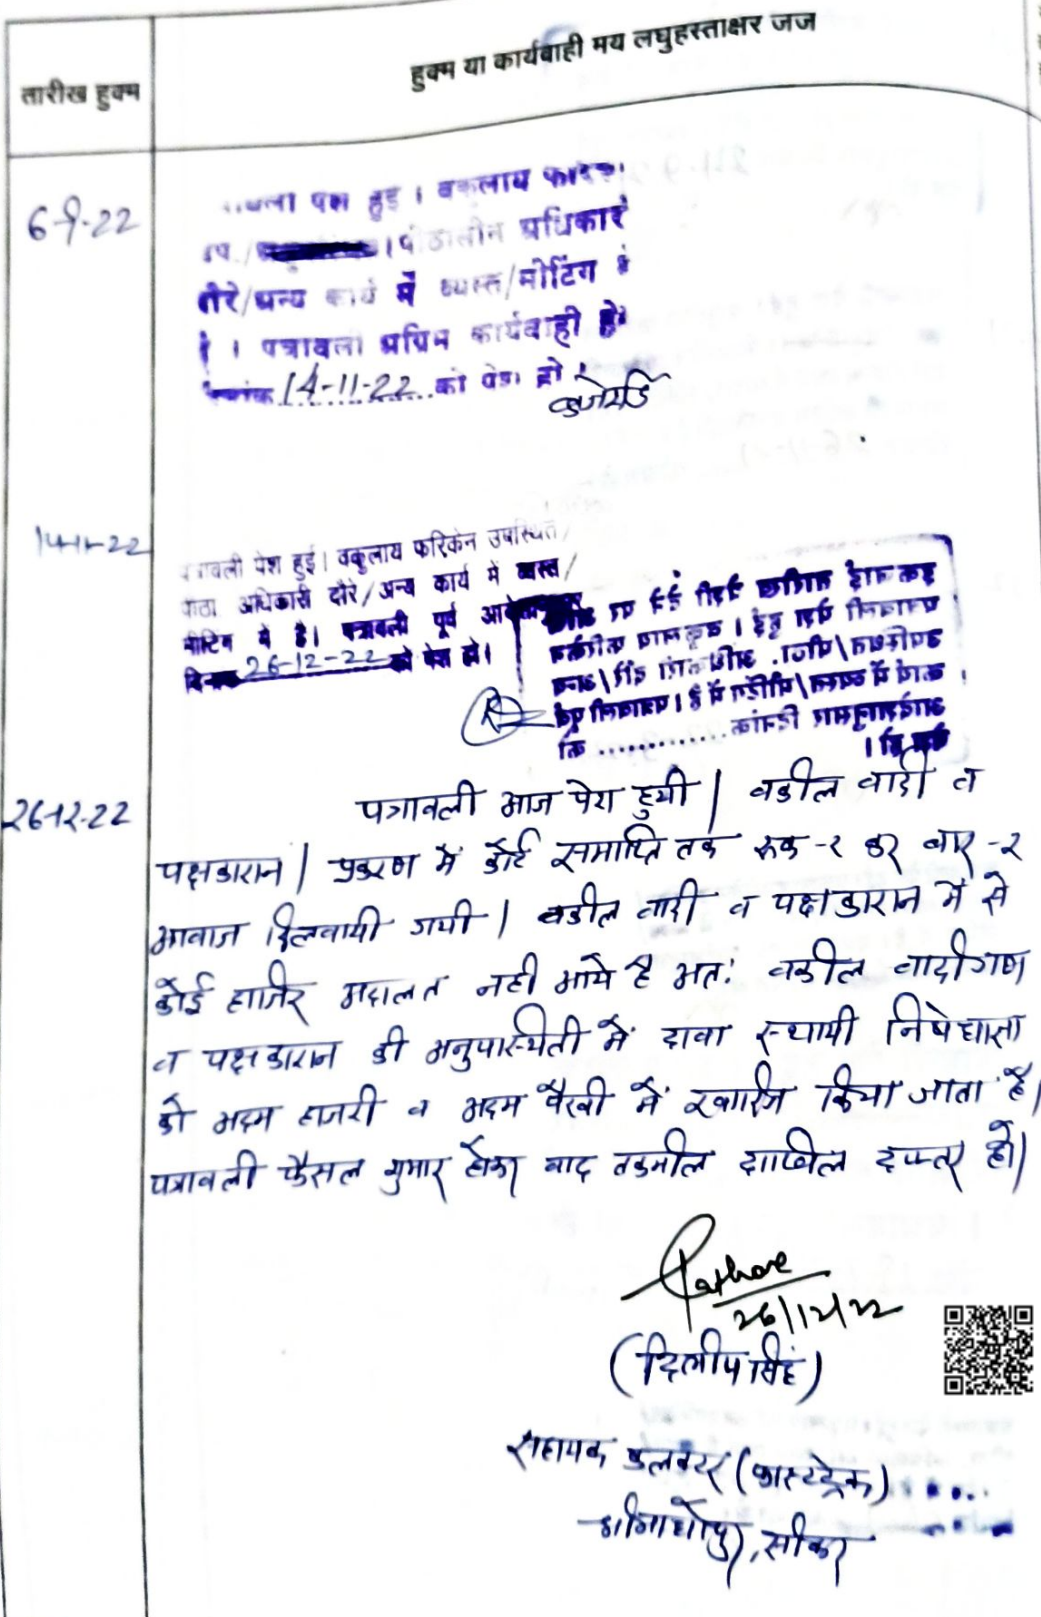 तारीख हुक्म
हुक्म या कार्यवाही मय लघुहस्ताक्षर जज
6-9-22
पेश हुई । वकलाय
पीठासीन अधिकारी
दौरे/अन्य कार्य में व्यस्त/मीटिंग
। पत्रावली अग्रिम कार्यवाही हेतु
14-11-22 को पेश हो ।
14-11-22
पत्रावली पेश हुई। वकुलाय फरिकेन उपस्थित/
अधिकारी दौरे/अन्य कार्य में व्यस्त/
मीटिंग में है। पत्रावली पूर्व
दिनांक 26-12-22 को पेश हो।
26-12-22
पत्रावली आज पेश हुयी | वकील वादी व
पक्षकारान | प्रकरण में कोर्ट समाप्ति तक रूक-२ कर बार-२
आवाज दिलवायी गयी | वकील वादी व पक्षकारान में से
कोई हाजिर अदालत नही आये है अत: वकील वादीगण
व पक्षकारान की अनुपस्थिती में दावा स्थायी निषेधाज्ञा
को अदम हाजरी व अदम पैरवी में खारीज किया जाता है|
पत्रावली फैसल शुमार होकर बाद तकमील दाखिल दफ्तर हो|
26/12/22
(दिलीप सिंह)
सहायक कलक्टर (फास्टट्रेक)
सीकर